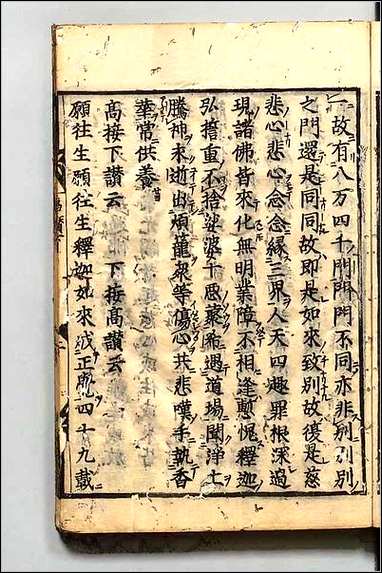 故有八万四千門門門不同亦非別別別
之門還是同同故即是如來致別故復是慈
悲心悲心念念縁三界人天四趣罪根深過
現諸佛皆來化無明業障不相逢慙愧釋迦
弘擔重不捨娑婆十惡叢希遇道場聞淨土
騰神永逝出煩籠衆等傷心共悲嘆手執香
華常供養
高接下讃云 下接高讃云
願往生願往生釋迦如來成正覺四十九載